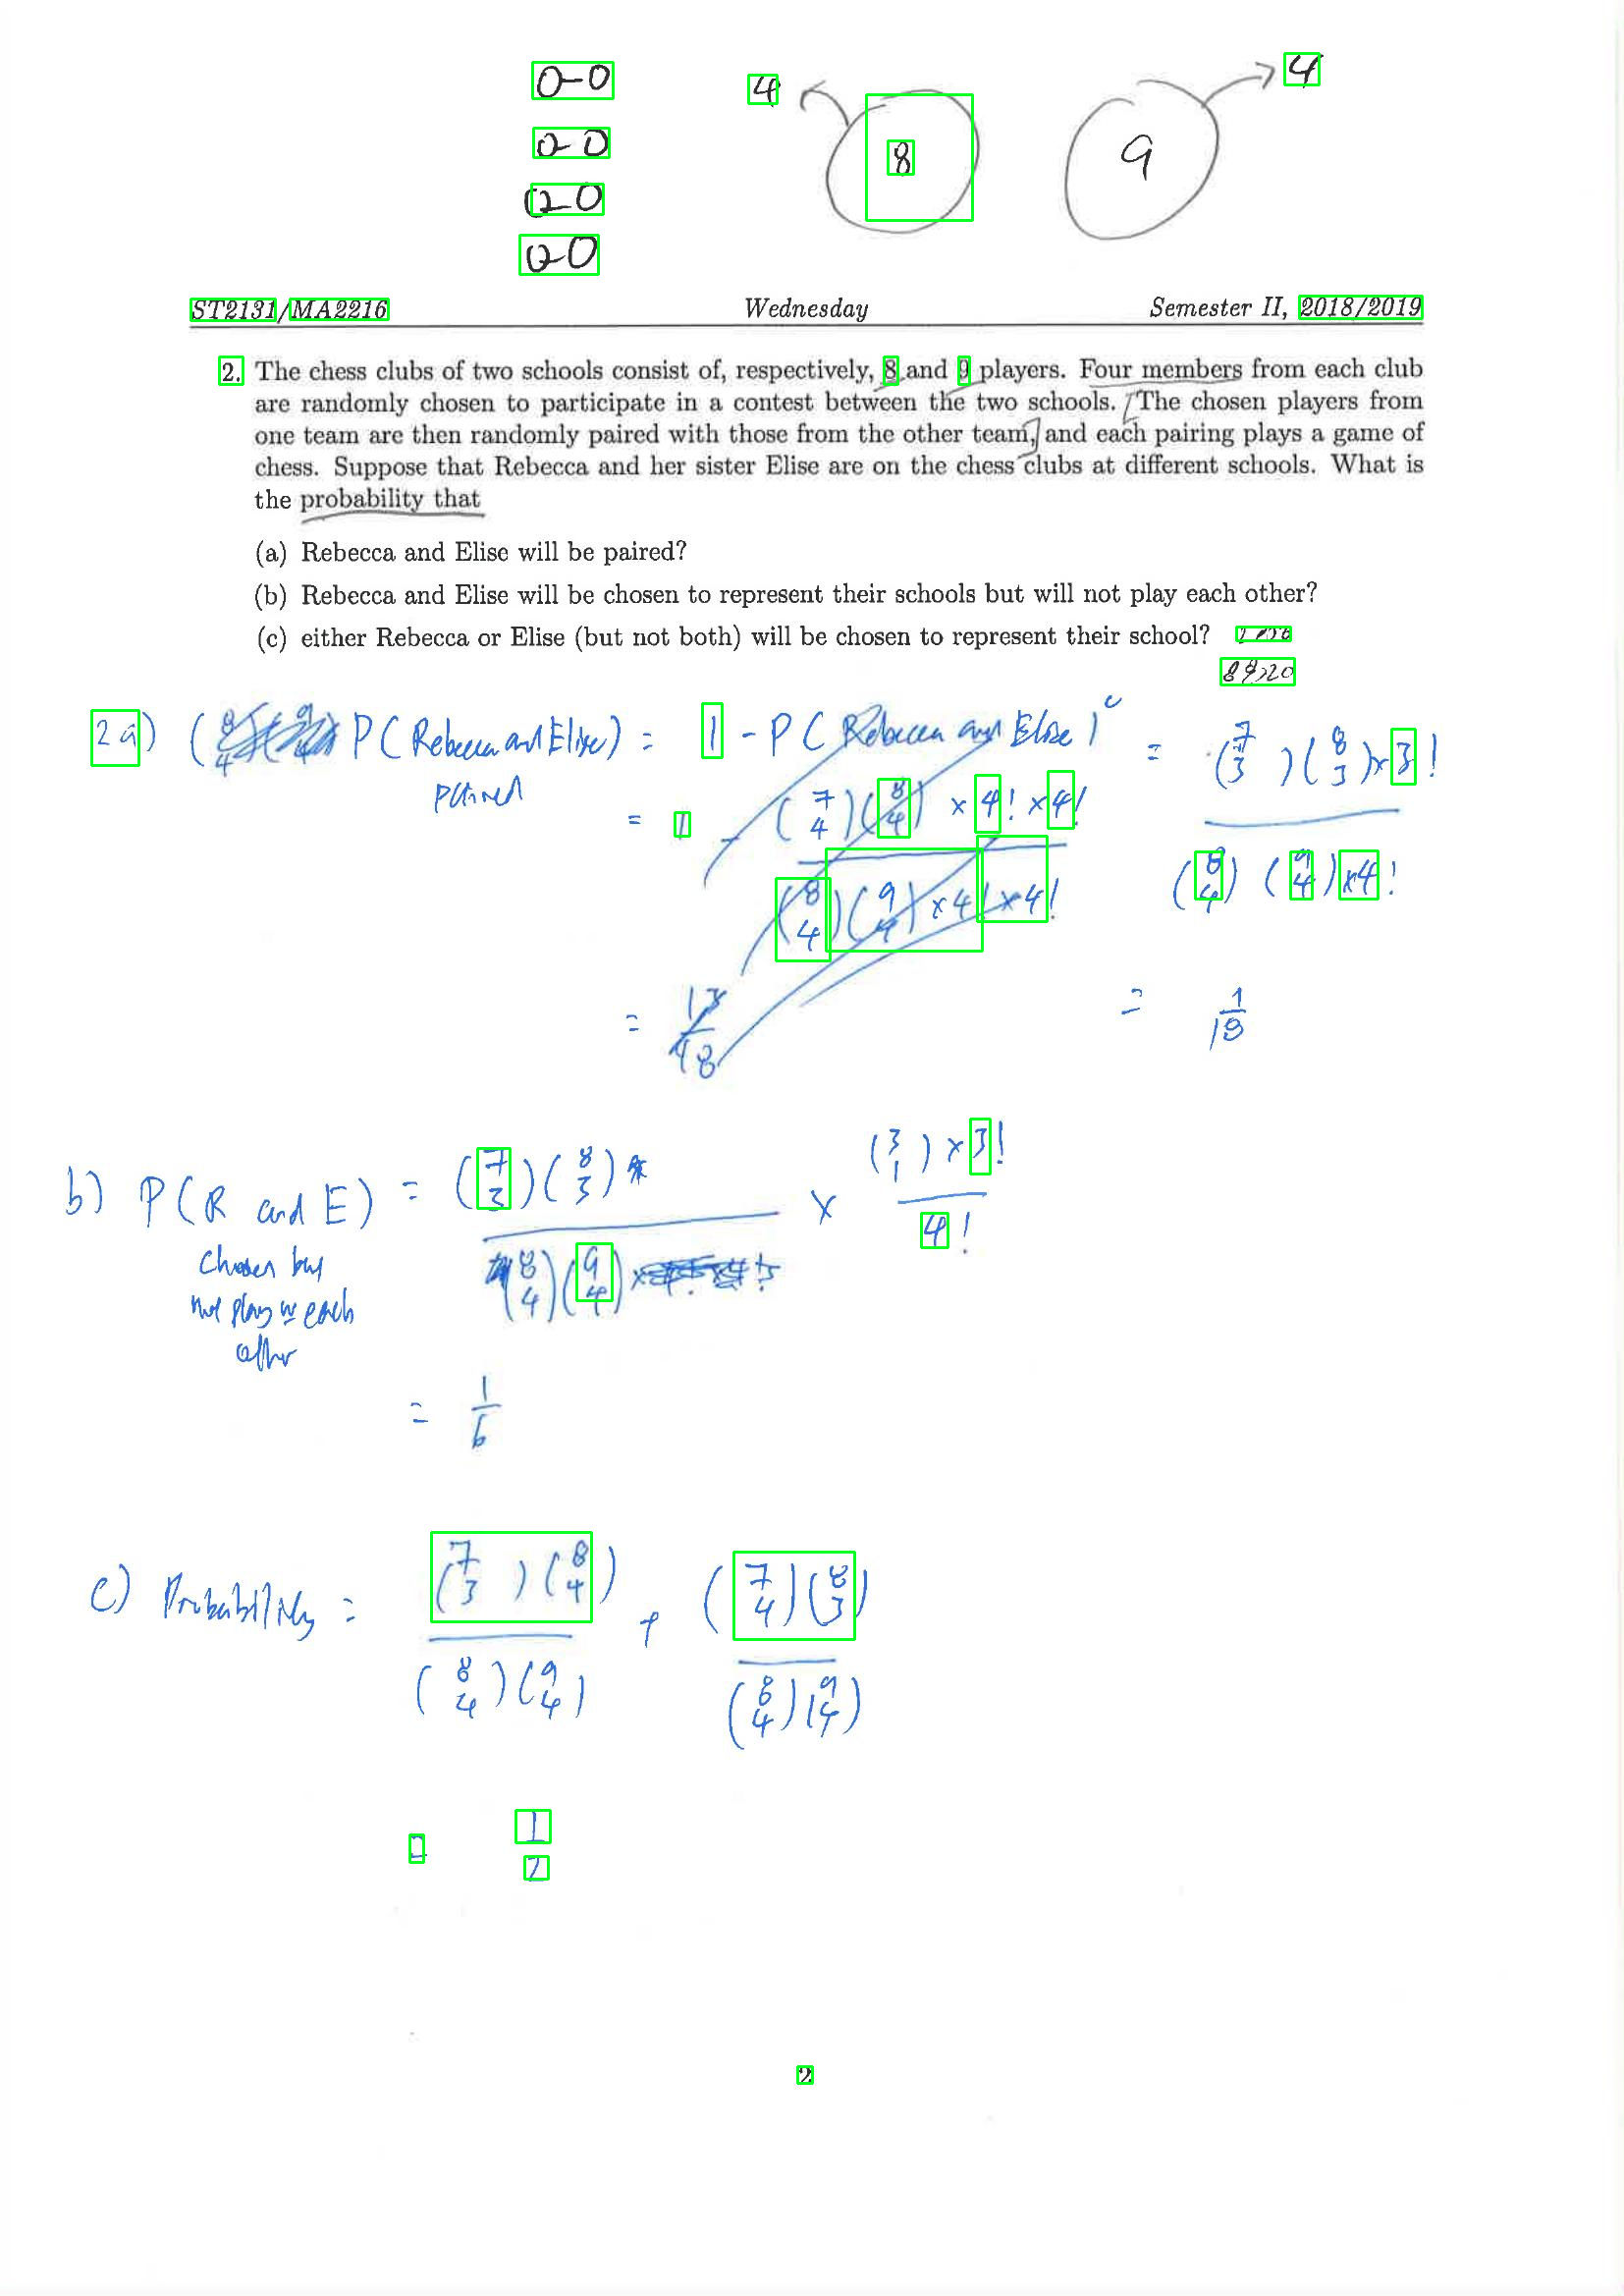 0-0
0-0
0-0
0-0
4 8 9 4
ST2131/MA2216 Wednesday Semester II, 2018/2019
2. The chess clubs of two schools consist of, respectively, 8 and 9 players. Four members from each club
are randomly chosen to participate in a contest between the two schools. The chosen players from
one team are then randomly paired with those from the other team, and each pairing plays a game of
chess. Suppose that Rebecca and her sister Elise are on the chess clubs at different schools. What is
the probability that
(a) Rebecca and Elise will be paired?
(b) Rebecca and Elise will be chosen to represent their schools but will not play each other?
(c) either Rebecca or Elise (but not both) will be chosen to represent their school?
2a) P(Rebecca and Elise) = 1 - P(Rebecca and Elise)^c = (7 3)(8 3)×3!
paired
= 1 - (7 4)(8 4) × 4! × 4!
(8 4)(9 4)×4!×4! (8 4)(9 4)×4!
= 17/18 = 1/18
b) P(R and E) = (7 3)(8 3) × (3 1)×3!
(8 4)(9 4) 4!
chosen but
not play w each
other
= 1/6
c) Probability = (7 3)(8 4) + (7 4)(8 3)
(8 4)(9 4) (8 4)(9 4)
= 1/2
2